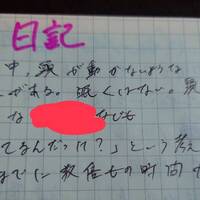 日記
中、頭が動かないような
がある。眠くはない。
な なども
てるんだっけ?」という考え
までに数倍もの時間